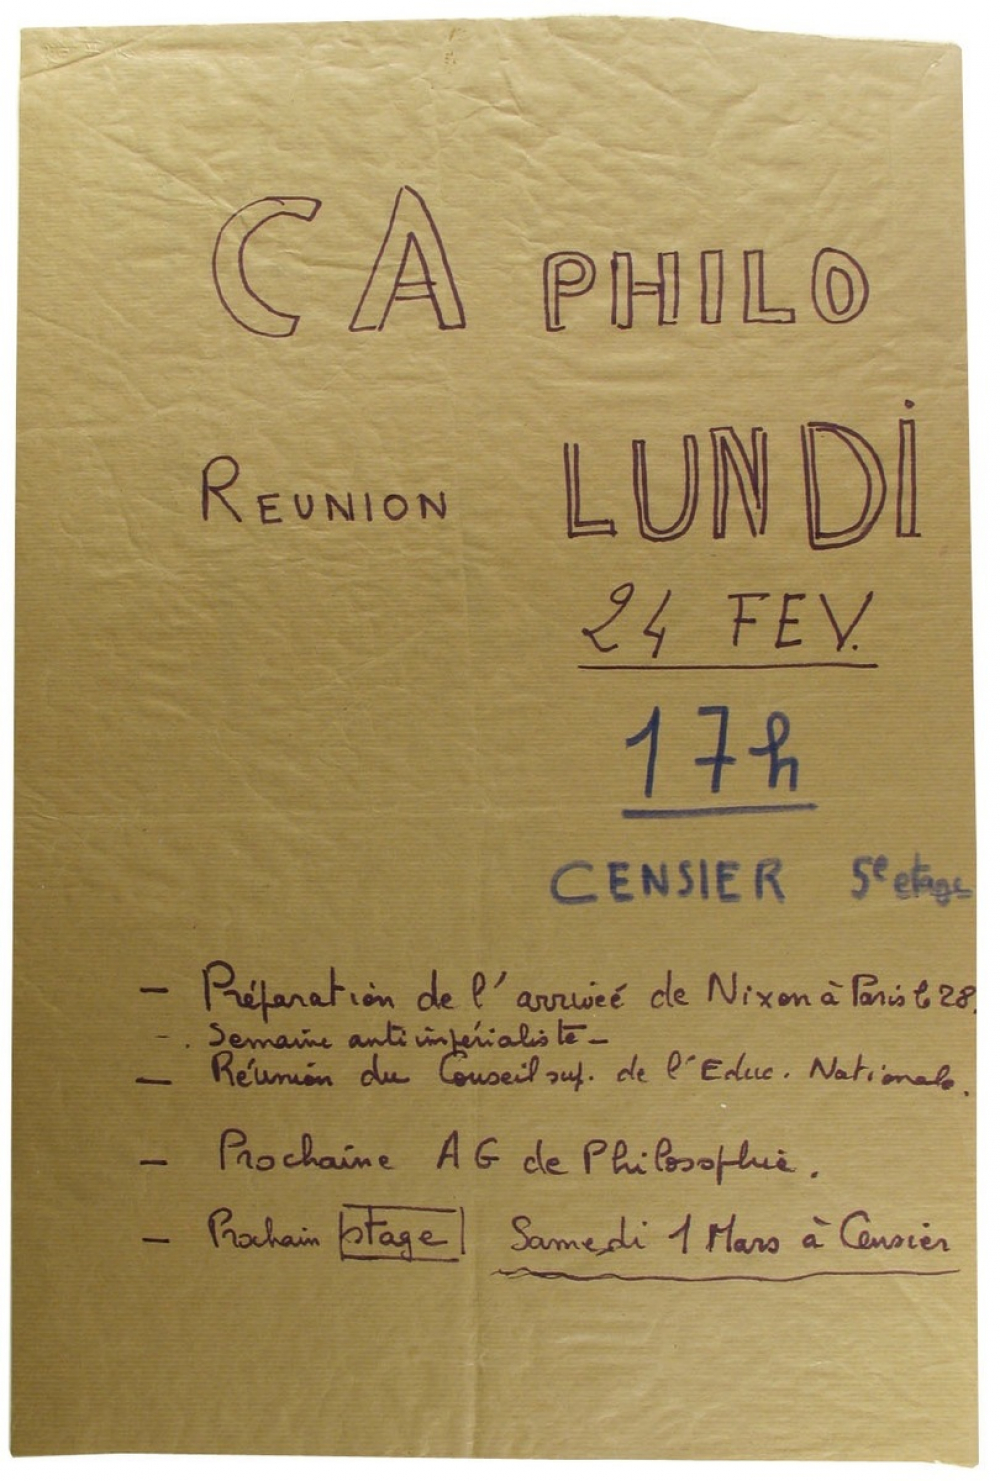 CA PHILO
REUNION LUNDI
24 FEV.
17h
CENSIER 5e etage
– Préparation de l'arrivée de Nixon à Paris le 28.
– . Semaine anti impérialiste –
– Réunion du Conseil sup. de l'Educ. Nationale.
– Prochaine AG de Philosophie.
– Prochain stage Samedi 1 Mars à Censier